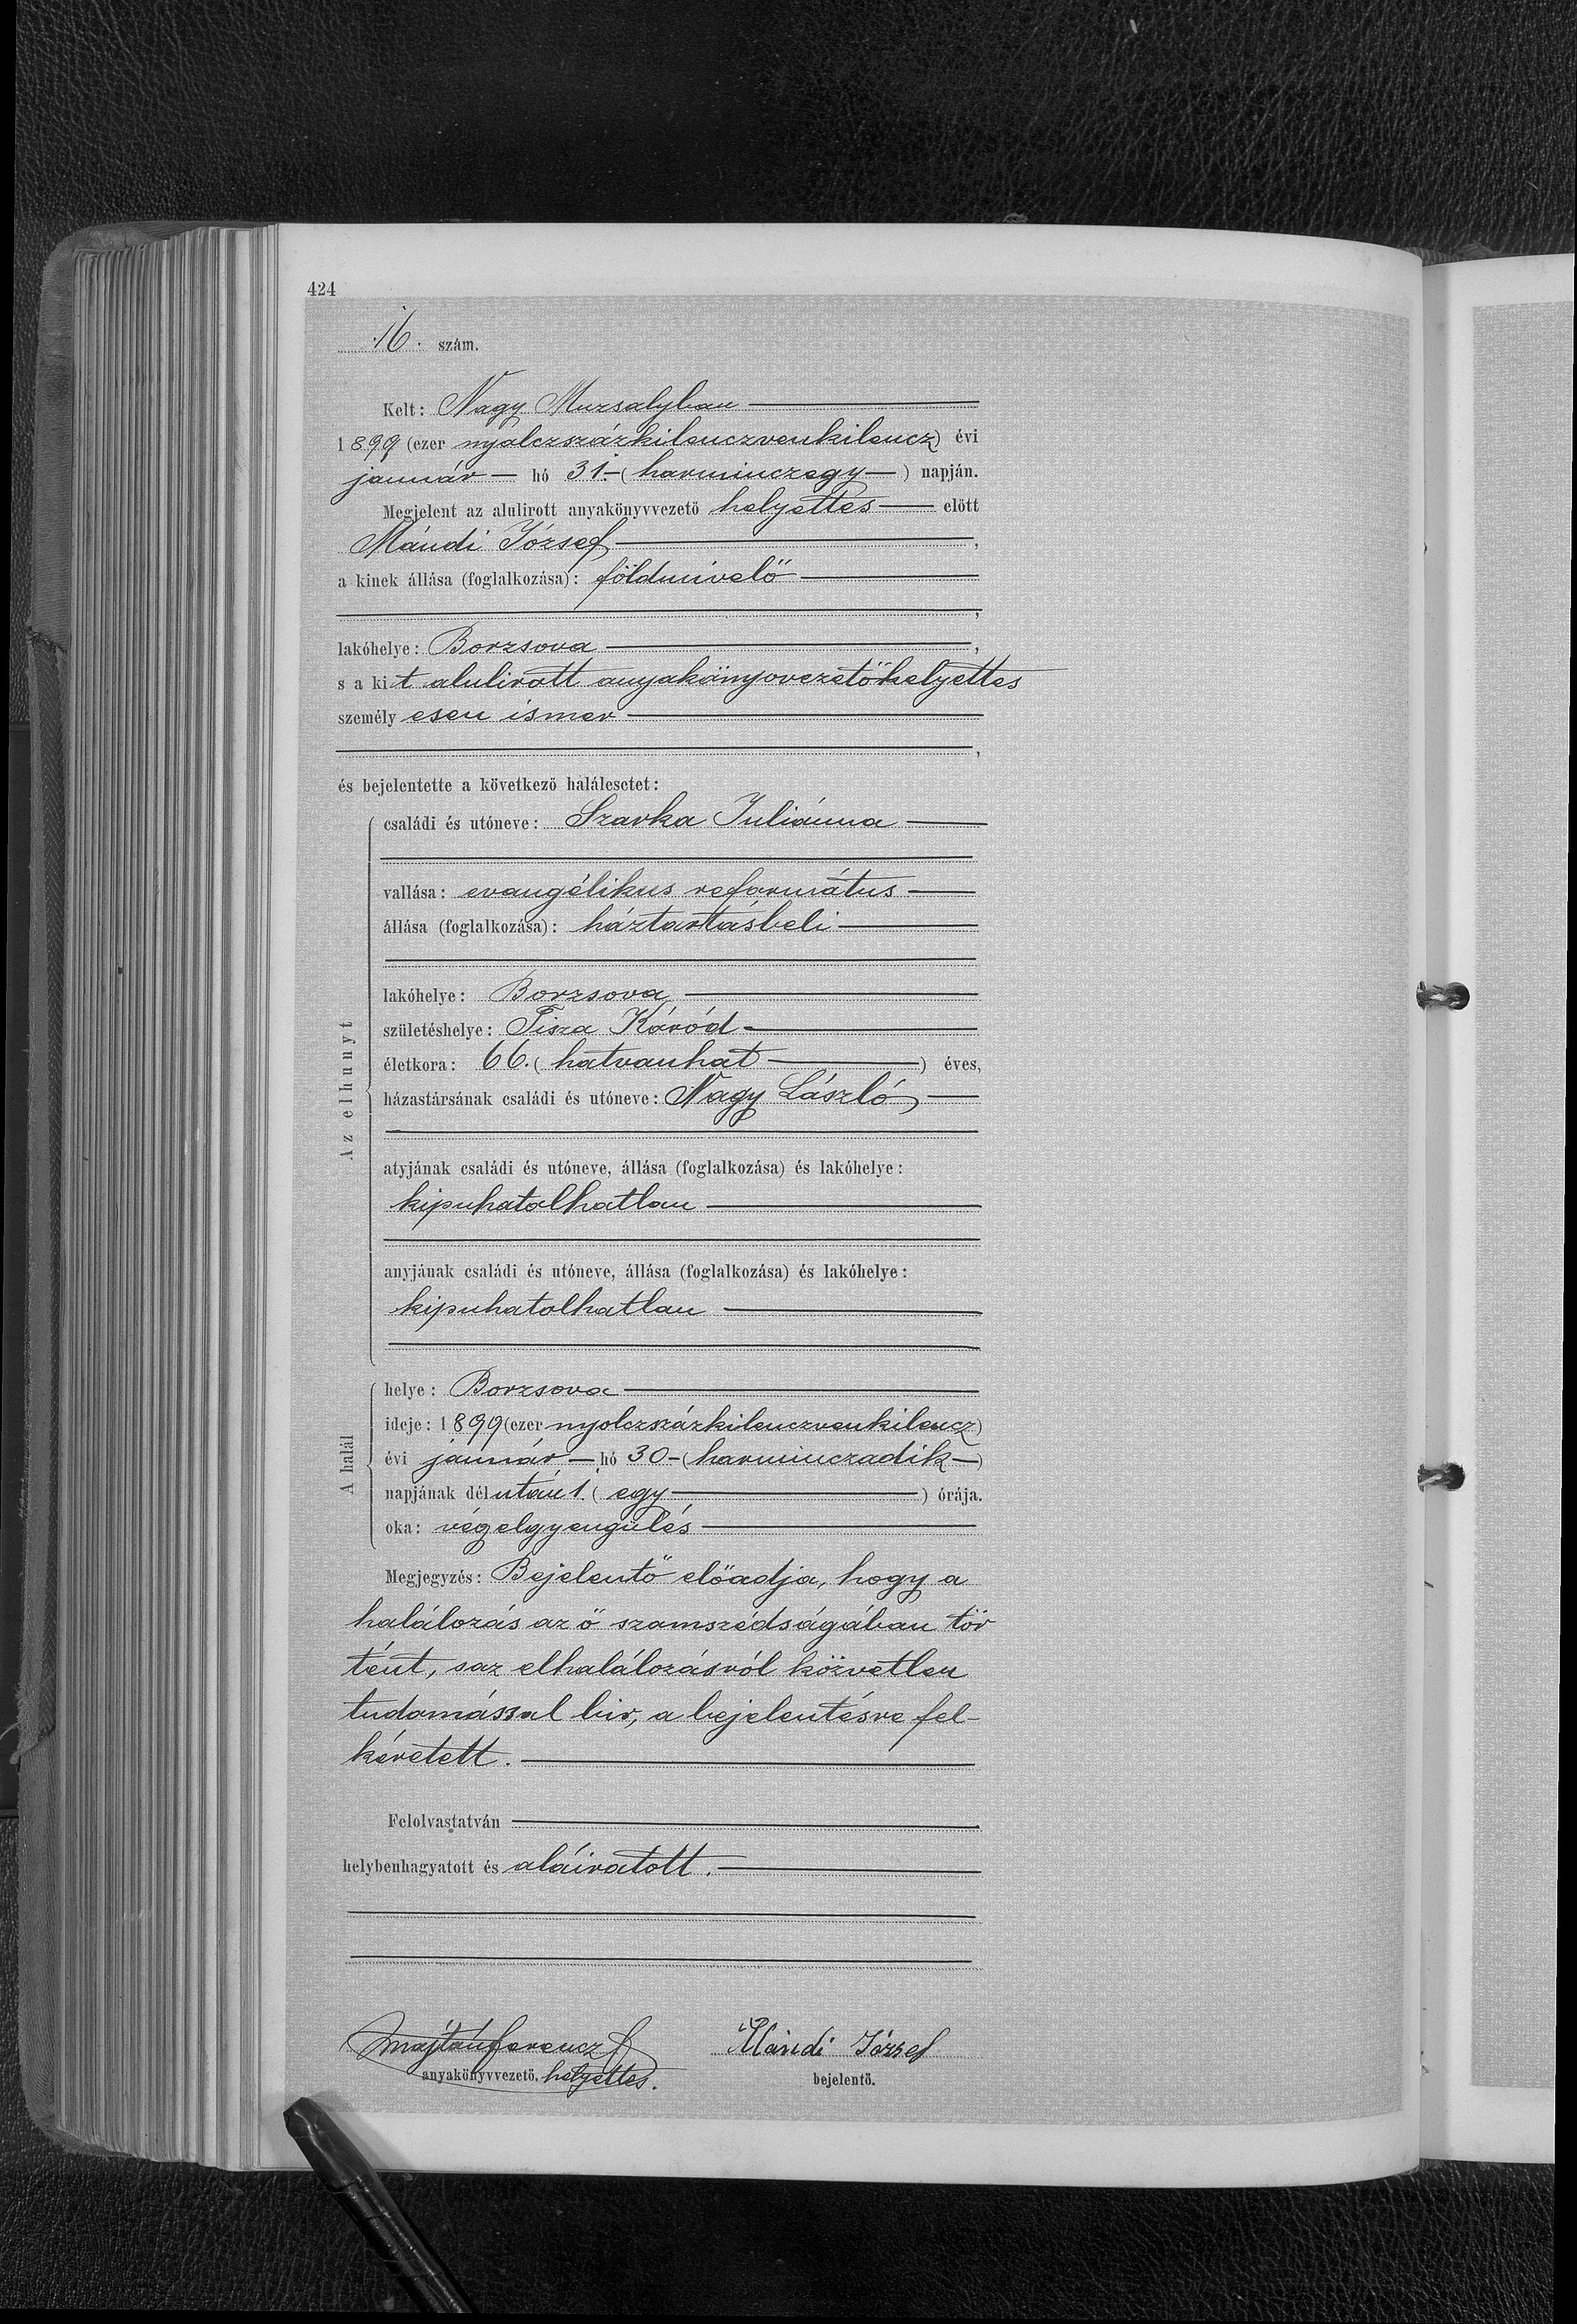 424
16. szám.
Kelt: Nagy Muzsalyban
1899 (ezer nyolczszázkilenczvenkilencz) évi
január hó 31. (harminczegy) napján.
Megjelent az alulirott anyakönyvvezető helyettes előtt
Mándi József,
a kinek állása (foglalkozása): földmivelő
,
lakóhelye: Borzsova,
s a kit alulirott anyakönyvvezetőhelyettes
személyesen ismer
,
és bejelentette a következő halálesetet:
Az elhunyt
családi és utóneve: Szavka Juliánna
vallása: evangélikus református
állása (foglalkozása): háztartásbeli
lakóhelye: Borzsova
születéshelye: Tisza Károd
életkora: 66. (hatvanhat) éves,
házastársának családi és utóneve: Nagy László
atyjának családi és utóneve, állása (foglalkozása) és lakóhelye:
kipuhatolhatlan
anyjának családi és utóneve, állása (foglalkozása) és lakóhelye:
kipuhatolhatlan
A halál
helye: Borzsova
ideje: 1899 (ezer nyolczszázkilenczvenkilencz)
évi január hó 30 (harminczadik)
napjának délután 1. (egy) órája.
oka: végelgyengülés
Megjegyzés: Bejelentő előadja, hogy a
halálozás az ő szamszédságában tör
tént, saz elhalálozásról közvetlen
tudomással bir, a bejelentésre fel-
kéretett.
Felolvastatván
helybenhagyatott és aláiratott.
Majtán Ferencz Mándi József
anyakönyvvezető. helyettes. bejelentő.